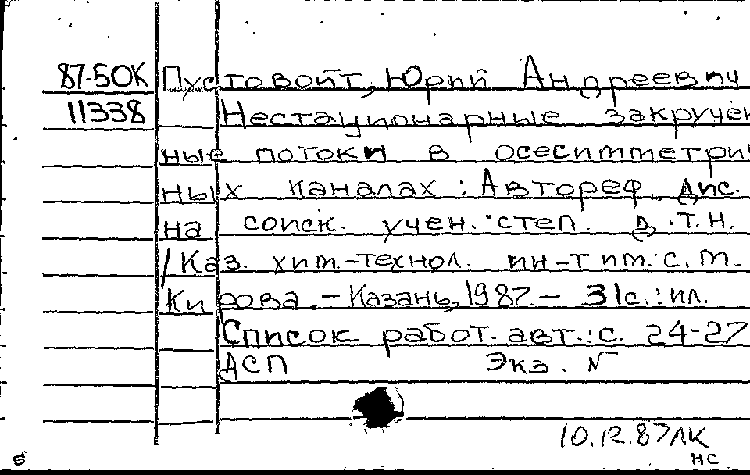 87-5OK Пустовойт, Юрий Андреевич
11338 Нестационарные закручен
ные потоки в осесимметрич
ных каналах : Автореф. дис.
на соиск. учен. степ. д.т.н.
/ Каз. хим.-технол. ин-т им. С. М.
Кирова. - Казань, 1987. - 31с. : ил.
Список работ. авт.: с. 24-27
АСП Экз. N
10.12.87ЛК
НС
Б